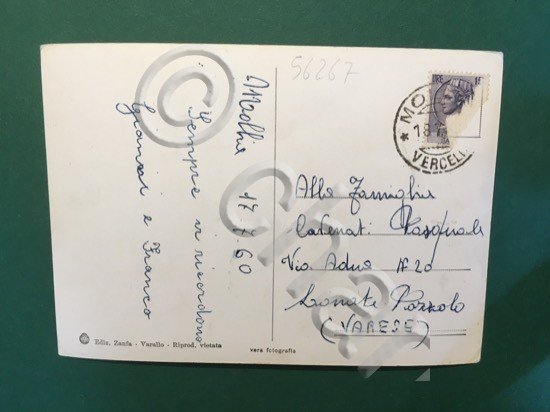 56267
Mollia 17.7.60
Sempre vi ricordono
Gianni e Franco
LIRE 15
MOL
18 7
VERCELLI
Alla Famiglia
Catenati Pasquale
Via Adua N° 20
Lonate Pozzolo
(VARESE)
Ediz. Zanfa - Varallo - Riprod. vietata
vera fotografia